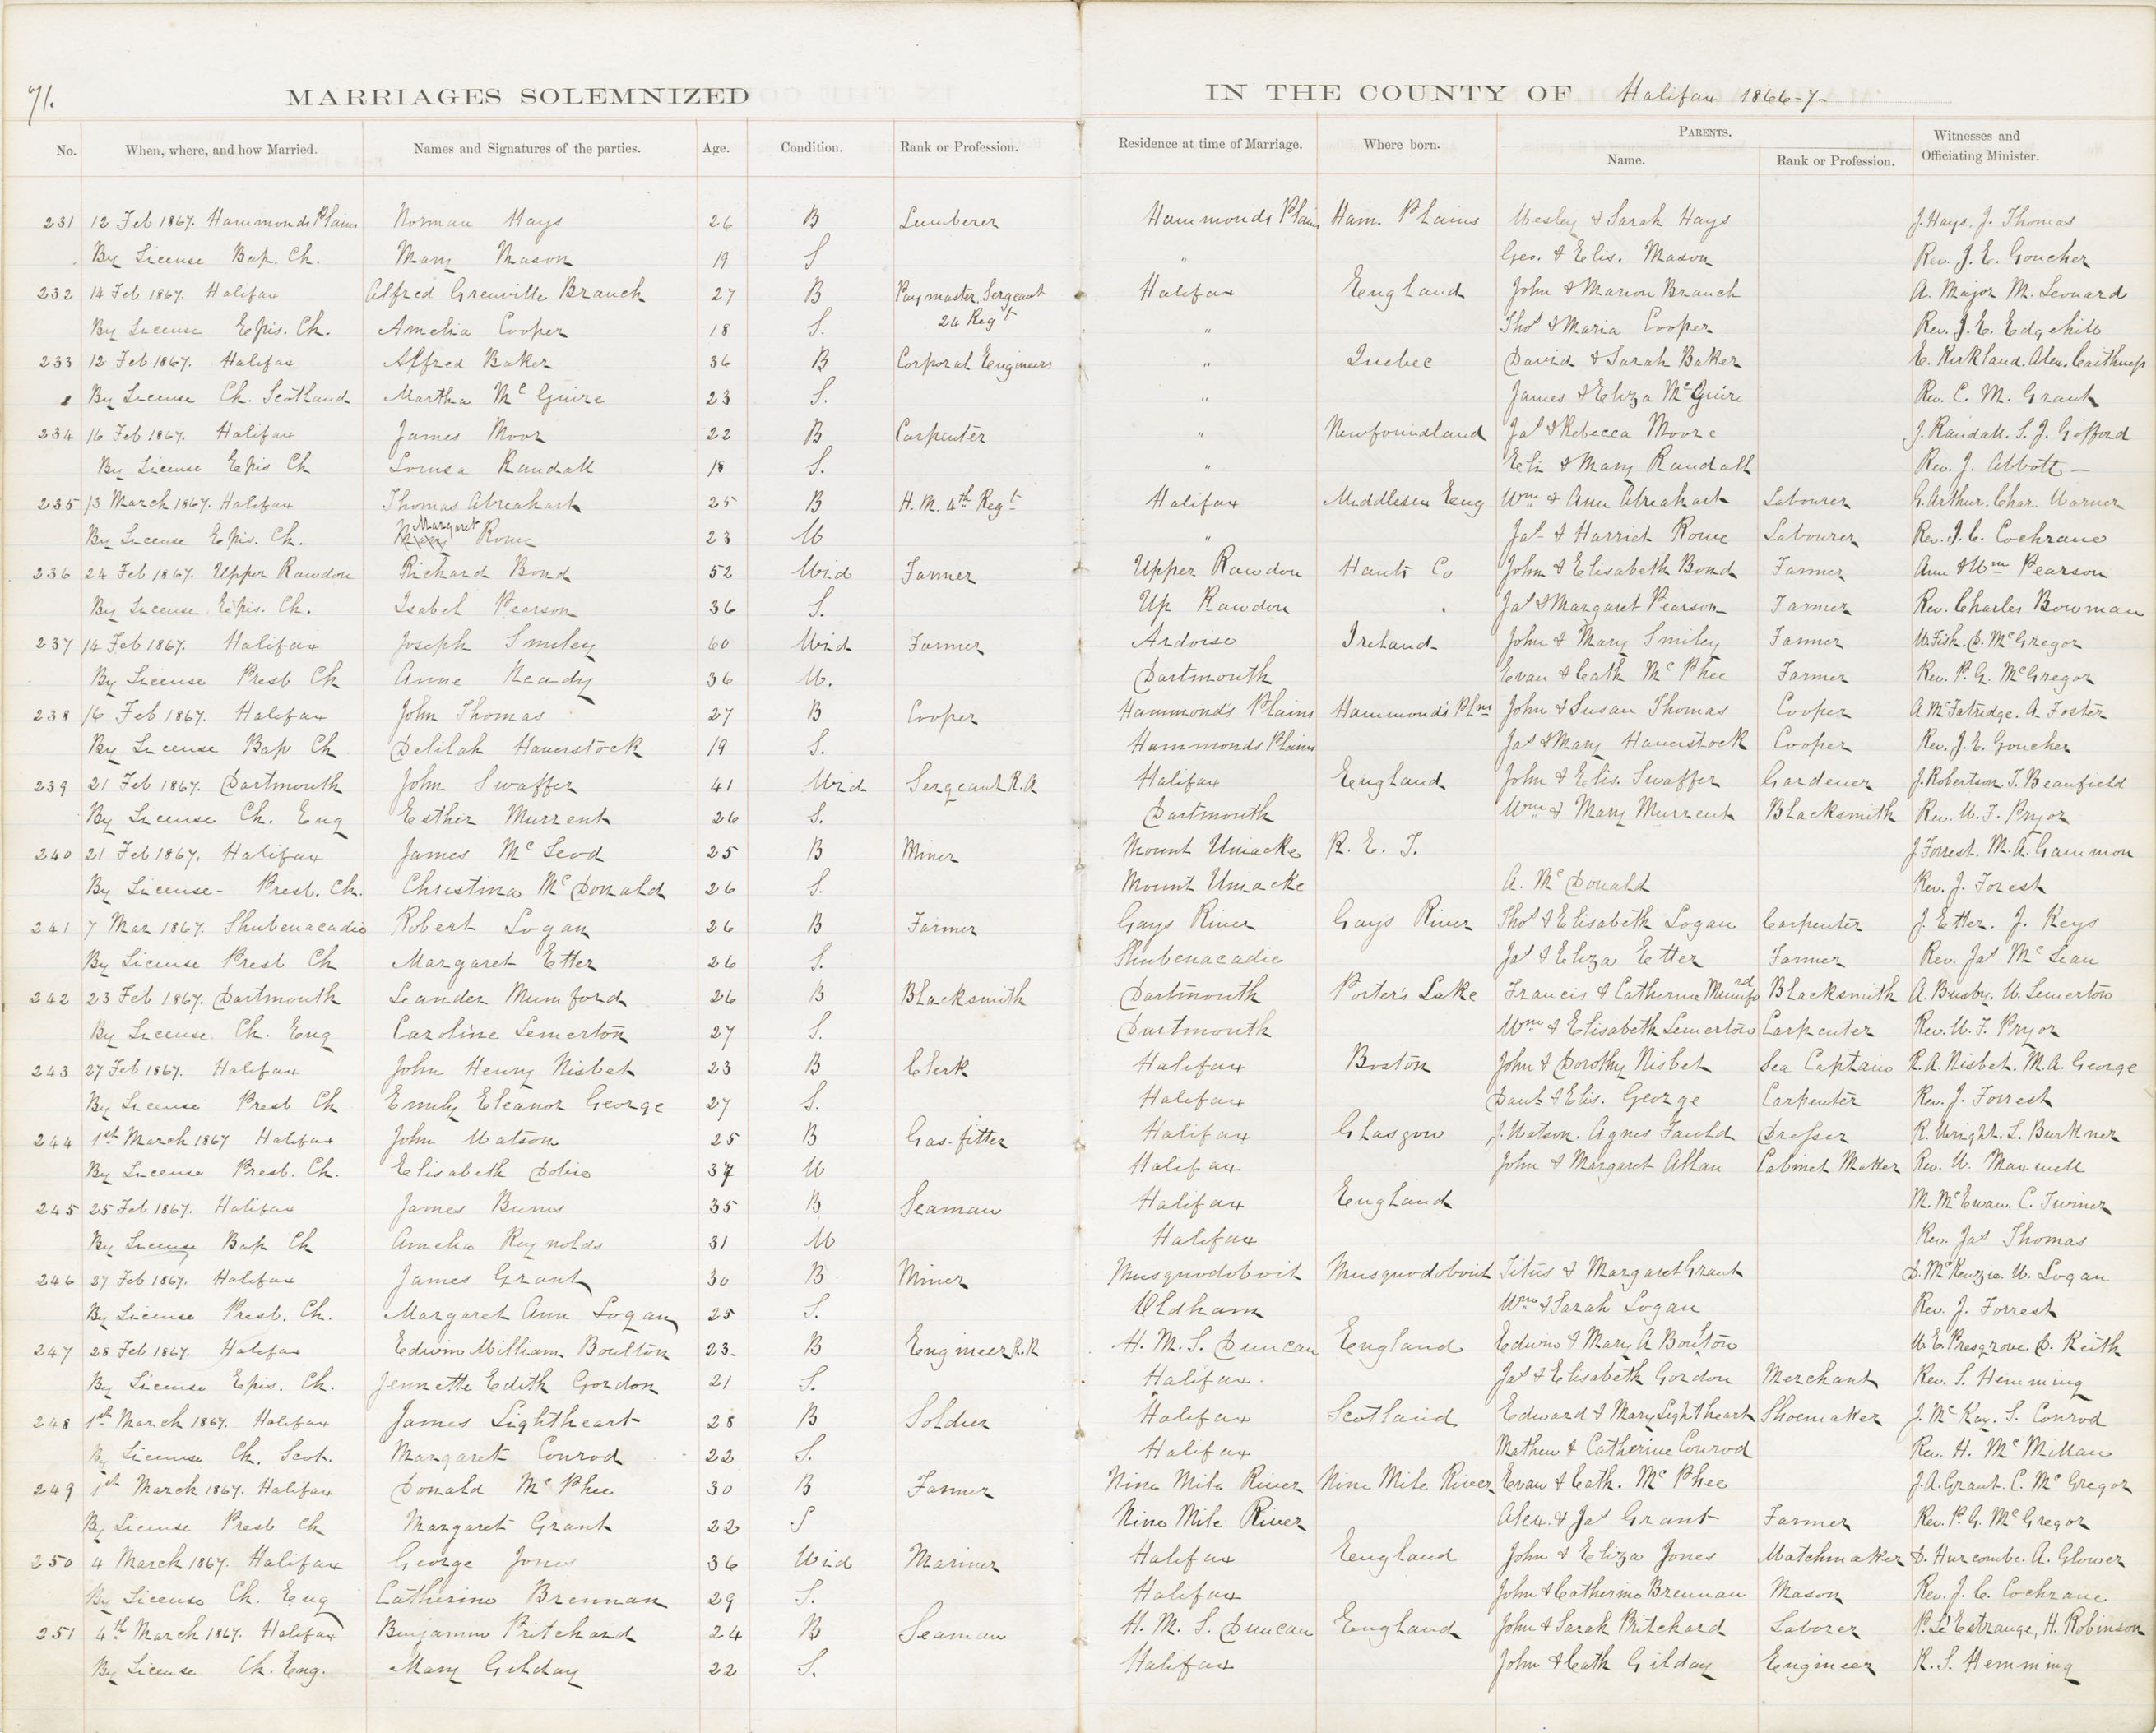 71.
MARRIAGES SOLEMNIZED IN THE COUNTY OF Halifax 1866-7-
No. When, where, and how Married. Names and Signatures of the parties. Age. Condition. Rank or Profession. Residence at time of Marriage. Where born. PARENTS. Name. Rank or Profession. Witnesses and Officiating Minister.
231 12 Feb 1867. Hammonds Plains Norman Hays 26 B Lumberer Hammonds Plains Ham. Plains Wesley & Sarah Hays J. Hays. J. Thomas
By License Bap. Ch. Mary Mason 19 S " Geo. & Elis. Mason Rev. J. E. Goucher
232 14 Feb 1867. Halifax Alfred Grenville Branch 27 B Paymaster, Sergeant Halifax England John & Marion Branch A. Major M. Leonard
By License Epis. Ch. Amelia Cooper 18 S. 24 Regt " Thos & Maria Cooper Rev. J. E. Edgehill
233 12 Feb 1867. Halifax Alfred Baker 36 B Corporal Engineers " Quebec David & Sarah Baker E. Kirkland. Alex. Caithness
By License Ch. Scotland Martha McGuire 23 S. " James & Eliza McGuire Rev. C. M. Grant
234 16 Feb 1867. Halifax James Moor 22 B Carpenter " Newfoundland Jas & Rebecca Moore J. Randall. S. J. Gifford
By License Epis Ch Louisa Randall 18 S. " Eli & Mary Randall Rev. J. Abbott -
235 13 March 1867. Halifax Thomas Abreahart 25 B H. M. 4th Regt Halifax Middlesex Eng Wm & Ann Abreahart Labourer G. Arthur. Char. Warner
By License Epis. Ch. Margaret Rowe 23 W " Jas & Harriet Rowe Labourer Rev. J. C. Cochrane
236 24 Feb 1867. Upper Rawdon Richard Bond 52 Wid Farmer Upper Rawdon Hants Co John & Elisabeth Bond Farmer Ann & Wm Pearson
By License Epis. Ch. Isabel Pearson 36 S. Up Rawdon Jas & Margaret Pearson Farmer Rev. Charles Bowman
237 14 Feb 1867. Halifax Joseph Smiley 60 Wid Farmer Ardoise Ireland John & Mary Smiley Farmer W. Fish. D. McGregor
By License Presb Ch Anne Neady 36 W. Dartmouth Evan & Cath McPhee Farmer Rev. P. G. McGregor
238 16 Feb 1867. Halifax John Thomas 27 B Cooper Hammonds Plains Hammonds Plns John & Susan Thomas Cooper A. McFatridge. A Foster
By License Bap Ch Delilah Haverstock 19 S. Hammonds Plains Jas & Mary Haverstock Cooper Rev. J. E. Goucher
239 21 Feb 1867. Dartmouth John Swaffer 41 Wid Sergeant R. A Halifax England John & Elis. Swaffer Gardener J. Robertson. T. Beanfield
By License Ch. Eng Esther Murrent 26 S. Dartmouth Wm & Mary Murrent Blacksmith Rev. W. F. Pryor
240 21 Feb 1867. Halifax James McLeod 25 B Miner Mount Uniacke R. E. I. J. Forrest. M. A. Gammon
By License - Presb. Ch. Christina McDonald 26 S. Mount Uniacke A. McDonald Rev. J. Forest
241 7 Mar 1867. Shubenacadie Robert Logan 26 B Farmer Gays River Gays River Thos & Elisabeth Logan Carpenter J. Etter. J. Keys
By License Presb Ch Margaret Etter 26 S. Shubenacadie Jas & Eliza Etter Farmer Rev. Jas McLean
242 23 Feb 1867. Dartmouth Leander Mumford 26 B Blacksmith Dartmouth Porter's Lake Francis & Catherine Mumford Blacksmith A. Busby. W. Lemerton
By License. Ch. Eng Caroline Lemerton 27 S. Dartmouth Wm & Elisabeth Lemerton Carpenter Rev. W. F. Pryor
243 27 Feb 1867. Halifax John Henry Nisbet 23 B Clerk Halifax Boston John & Dorothy Nisbet Sea Captain R. A. Nisbet. M. A. George
By License Presb Ch Emily Eleanor George 27 S. Halifax Danl & Elis. George Carpenter Rev. J. Forrest
244 1st March 1867 Halifax John Watson 25 B Gas-fitter Halifax Glasgow J. Watson. Agnes Fauld Dresser R. Wright. L. Burkner
By License Presb. Ch. Elisabeth Dobie 37 W Halifax John & Margaret Allan Cabinet Maker Rev. W. Maxwell
245 25 Feb 1867. Halifax James Burns 35 B Seaman Halifax England M. McEwan. C. Turner
By License Bap Ch Amelia Reynolds 31 W Halifax Rev. Jas Thomas
246 27 Feb 1867. Halifax James Grant 30 B Miner Musquodoboit Musquodoboit Titus & Margaret Grant D. McKenzie. W. Logan
By License Presb. Ch. Margaret Ann Logan 25 S. Oldham Wm & Sarah Logan Rev. J. Forrest
247 28 Feb 1867. Halifax Edwin William Boulton 23. B Engineer R. N H. M. S. Duncan England Edwin & Mary A Boulton W. E. Presgrove. D. Keith
By License Epis. Ch. Jennette Edith Gordon 21 S. Halifax. Jas & Elisabeth Gordon Merchant Rev. S. Hemming
248 1st March 1867. Halifax James Lightheart 28 B Soldier Halifax Scotland Edward & Mary Lightheart Shoemaker J. McKay. S. Conrod
By License Ch. Scot. Margaret Conrod 22 S. Halifax Mathew & Catherine Conrod Rev. H. McMillan
249 1st March 1867. Halifax Donald McPhee 30 B Farmer Nine Mile River Nine Mile River Evan & Cath. McPhee J. A. Grant. C. McGregor
By License Presb Ch Margaret Grant 22 S Nine Mile River Alex. & Jas Grant Farmer Rev. P. G. McGregor
250 4 March 1867. Halifax George Jones 36 Wid Mariner Halifax England John & Eliza Jones Watchmaker D. Hurcombe. A. Glower
By License Ch. Eng Catherine Brennan 29 S. Halifax John & Catherine Brennan Mason Rev. J. C. Cochrane
251 4th March 1867. Halifax Benjamin Pritchard 24 B Seaman H. M. S. Duncan England John & Sarah Pritchard Laborer P. Le Estrange, H. Robinson
By License Ch. Eng. Mary Gilday 22 S. Halifax John & Cath Gilday Engineer R. S. Hemming